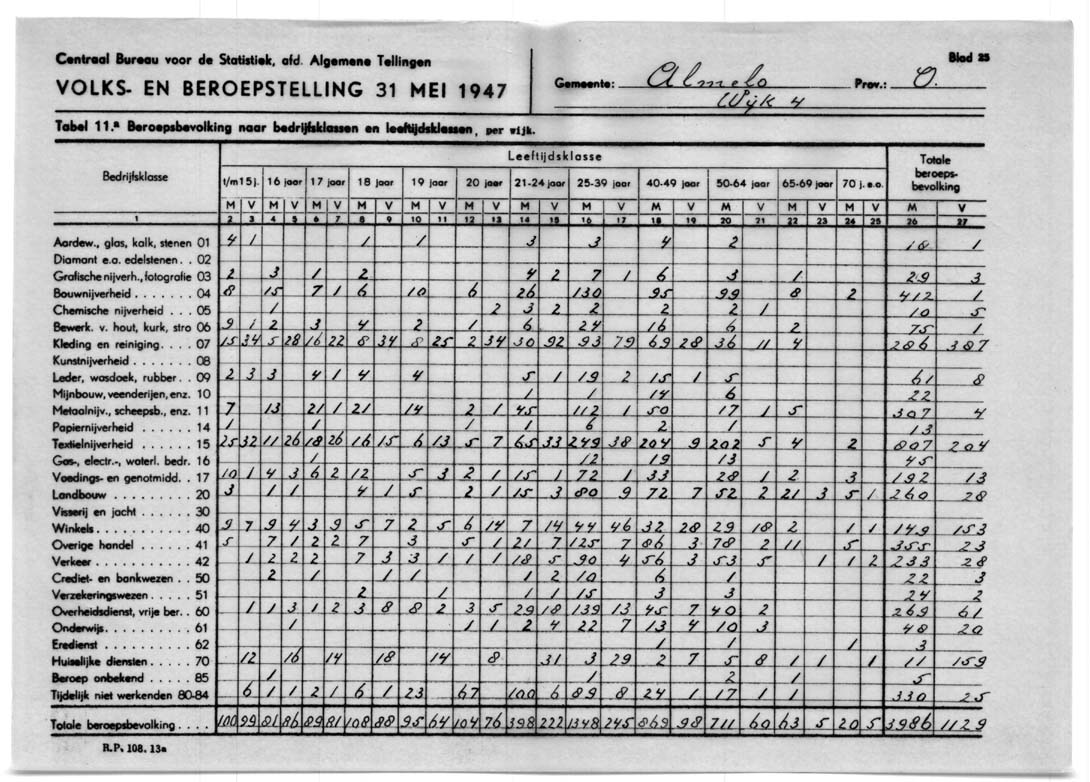 Centraal Bureau voor de Statistiek, afd. Algemene Tellingen
Blad 25
VOLKS- EN BEROEPSTELLING 31 MEI 1947
Gemeente: Almelo Prov.: O.
Wijk 4
Tabel 11.a Beroepsbevolking naar bedrijfsklassen en leeftijdsklassen, per wijk.
Bedrijfsklasse Leeftijdsklasse Totale beroeps-bevolking
t/m 15 j. 16 jaar 17 jaar 18 jaar 19 jaar 20 jaar 21-24 jaar 25-39 jaar 40-49 jaar 50-64 jaar 65-69 jaar 70 j. e.o.
M V M V M V M V M V M V M V M V M V M V M V M V M V
1 2 3 4 5 6 7 8 9 10 11 12 13 14 15 16 17 18 19 20 21 22 23 24 25 26 27
Aardew., glas, kalk, stenen 01 4 1 1 1 3 3 4 2 18 1
Diamant e.a. edelstenen . . 02
Grafische nijverh., fotografie 03 2 3 1 2 4 2 7 1 6 3 1 29 3
Bouwnijverheid . . . . . . . 04 8 15 7 1 6 10 6 26 130 95 99 8 2 412 1
Chemische nijverheid . . . 05 1 2 3 2 2 2 2 1 10 5
Bewerk. v. hout, kurk, stro 06 9 1 2 3 4 2 1 6 24 16 6 2 75 1
Kleding en reiniging. . . . . 07 15 34 5 28 16 22 8 34 8 25 2 34 30 92 93 79 69 28 36 11 4 286 387
Kunstnijverheid . . . . . . . 08
Leder, wasdoek, rubber. . 09 2 3 3 4 1 4 4 5 1 19 2 15 1 5 61 8
Mijnbouw, veenderijen, enz. 10 1 1 14 6 22
Metaalnijv., scheepsb., enz. 11 7 13 21 1 21 14 2 1 45 112 1 50 17 1 5 307 4
Papiernijverheid . . . . . . 14 1 1 1 1 6 2 1 13
Textielnijverheid . . . . . . 15 25 32 11 26 18 26 16 15 6 13 5 7 65 33 249 38 204 9 202 5 4 2 807 204
Gas-, electr.-, waterl. bedr. 16 1 12 19 13 45
Voedings- en genotmidd. . 17 10 1 4 3 6 2 12 5 3 2 1 15 1 72 1 33 28 1 2 3 192 13
Landbouw . . . . . . . . . 20 3 1 1 4 1 5 2 1 15 3 80 9 72 7 52 2 21 3 5 1 260 28
Visserij en jacht . . . . . . 30
Winkels . . . . . . . . . . . 40 9 7 9 4 3 9 5 7 2 5 6 14 7 14 44 46 32 28 29 18 2 1 1 149 153
Overige handel . . . . . . 41 5 7 1 2 2 7 3 5 1 21 7 125 7 86 3 78 2 11 5 355 23
Verkeer . . . . . . . . . . . 42 1 2 2 2 7 3 3 1 1 1 18 5 90 4 56 3 53 5 1 1 2 233 28
Crediet- en bankwezen . . 50 2 1 1 1 1 2 10 6 1 22 3
Verzekeringswezen . . . . 51 2 1 1 1 15 3 3 24 2
Overheidsdienst, vrije ber. . 60 1 1 3 1 2 3 8 8 2 3 5 29 18 139 13 45 7 40 2 269 61
Onderwijs. . . . . . . . . . 61 1 1 1 2 4 22 7 13 4 10 3 48 20
Eredienst . . . . . . . . . 62 1 1 1 3
Huiselijke diensten . . . . . 70 12 16 14 18 14 8 31 3 29 2 7 5 8 1 1 1 11 159
Beroep onbekend . . . . . 85 1 1 2 1 5
Tijdelijk niet werkenden 80-84 6 1 1 2 1 6 1 23 67 100 6 89 8 24 1 17 1 1 330 25
Totale beroepsbevolking . . . . 100 99 81 86 89 81 108 88 95 64 104 76 398 222 1348 245 869 98 711 60 63 5 20 5 3986 1129
R.P. 108. 13a